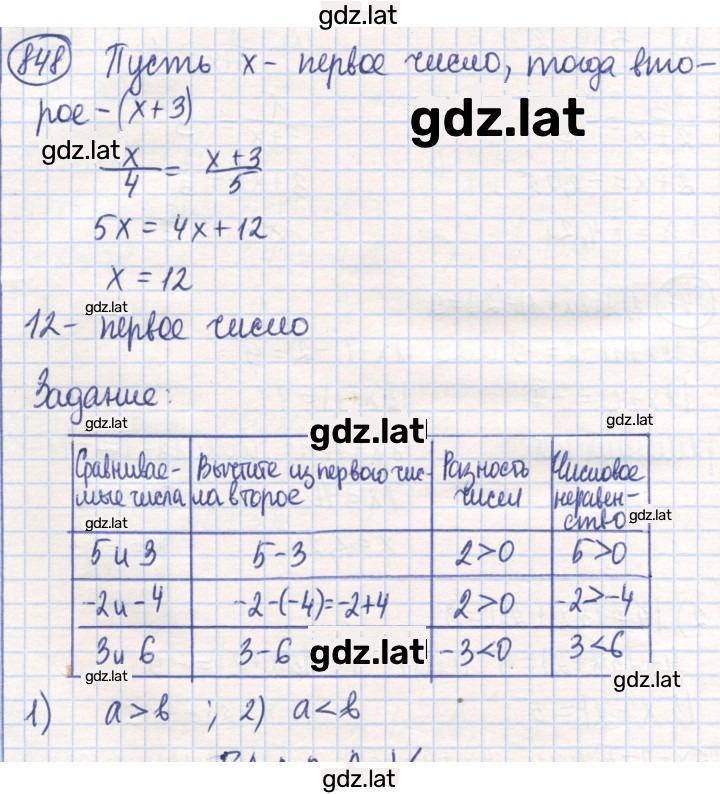 gdz.lat
848 Пусть x - первое число, тогда вто-
рое - (x+3)
gdz.lat
gdz.lat
x/4 = (x+3)/5
5x = 4x+12
x = 12
gdz.lat
12 - первое число
Задание:
gdz.lat
gdz.lat
gdz.lat
Сравнивае-
мые числа
Вычтите из первого чис-
ла второе
Разность
чисел
Числовое
неравен-
ство
gdz.lat
gdz.lat
5 и 3 5-3 2>0 5>0
-2 и -4 -2-(-4)=-2+4 2>0 -2>-4
3 и 6 3-6 -3<0 3<6
gdz.lat
gdz.lat
gdz.lat
1) a>b ; 2) a<b
gdz.lat